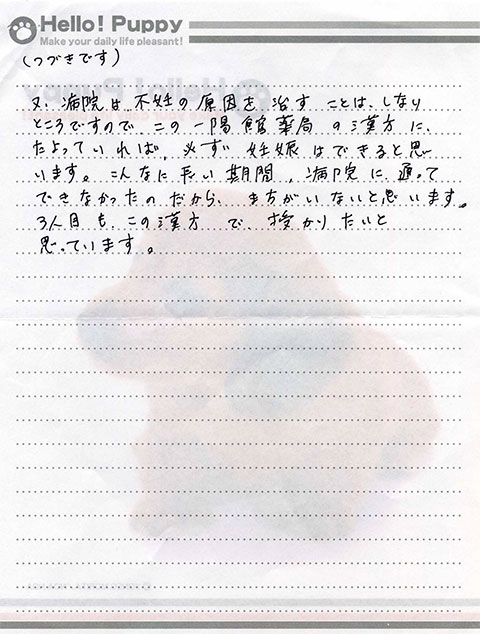 Hello! Puppy
Make your daily life pleasant!
(つづきです)
又、病院は、不妊の原因を治す ことは、しない
ところですので、この 一陽館薬局 の漢方 に、
たよっていれば、必ず 妊娠 はできると思
います。こんなに 長い 期間、病院に 通って
できなかったの だから、まちがいないと思います。
3人目も、この漢方 で、授かり たいと
思っています。